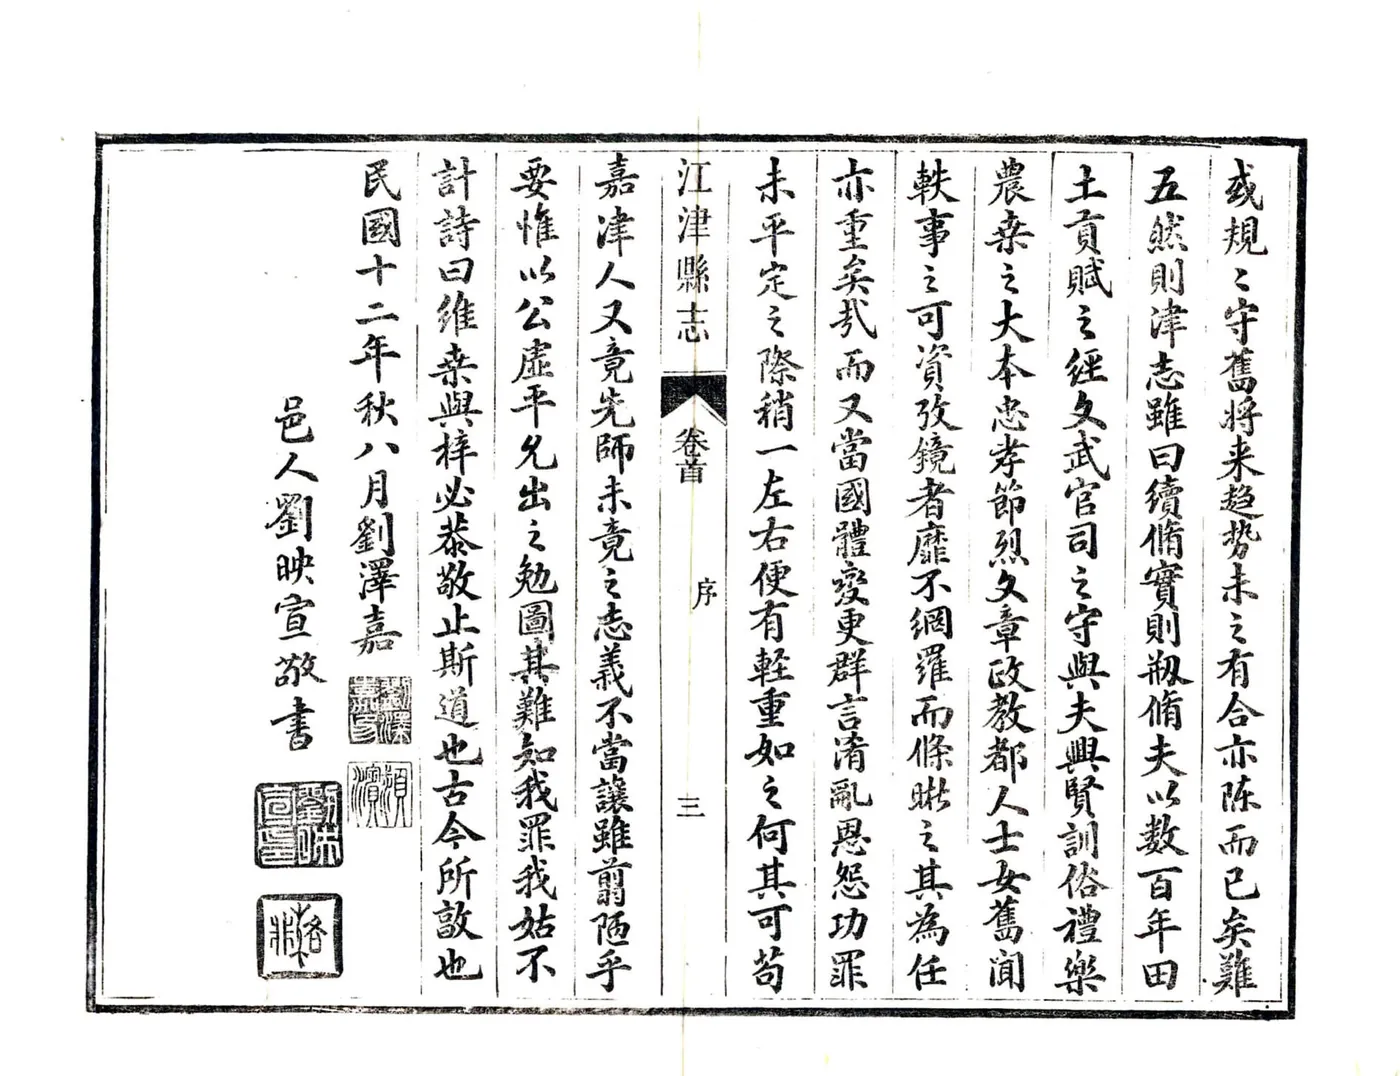 或規〻守舊將来趋势未之有合亦陈而已矣難
五然則津志雖曰續脩實則剏脩夫以数百年田
土貢賦之經文武官司之守與夫興賢訓俗禮樂
農桒之大本忠孝節烈文章政教都人士女舊聞
軼事之可資攷鏡者靡不網羅而條晰之其為任
亦重矣㢤而又當國體变更群言淆亂恩怨功罪
未平定之際稍一左右便有軽重如之何其可苟
江津縣志
卷首
序
三
嘉津人又竟先師未竟之志義不當讓雖翦陋乎
要惟以公虛平允出之勉圖其難知我罪我姑不
計詩曰維桒與梓必恭敬止斯道也古今所敦也
民國十二年秋八月劉澤嘉
劉澤嘉印
須濱
邑人劉映宣敬書